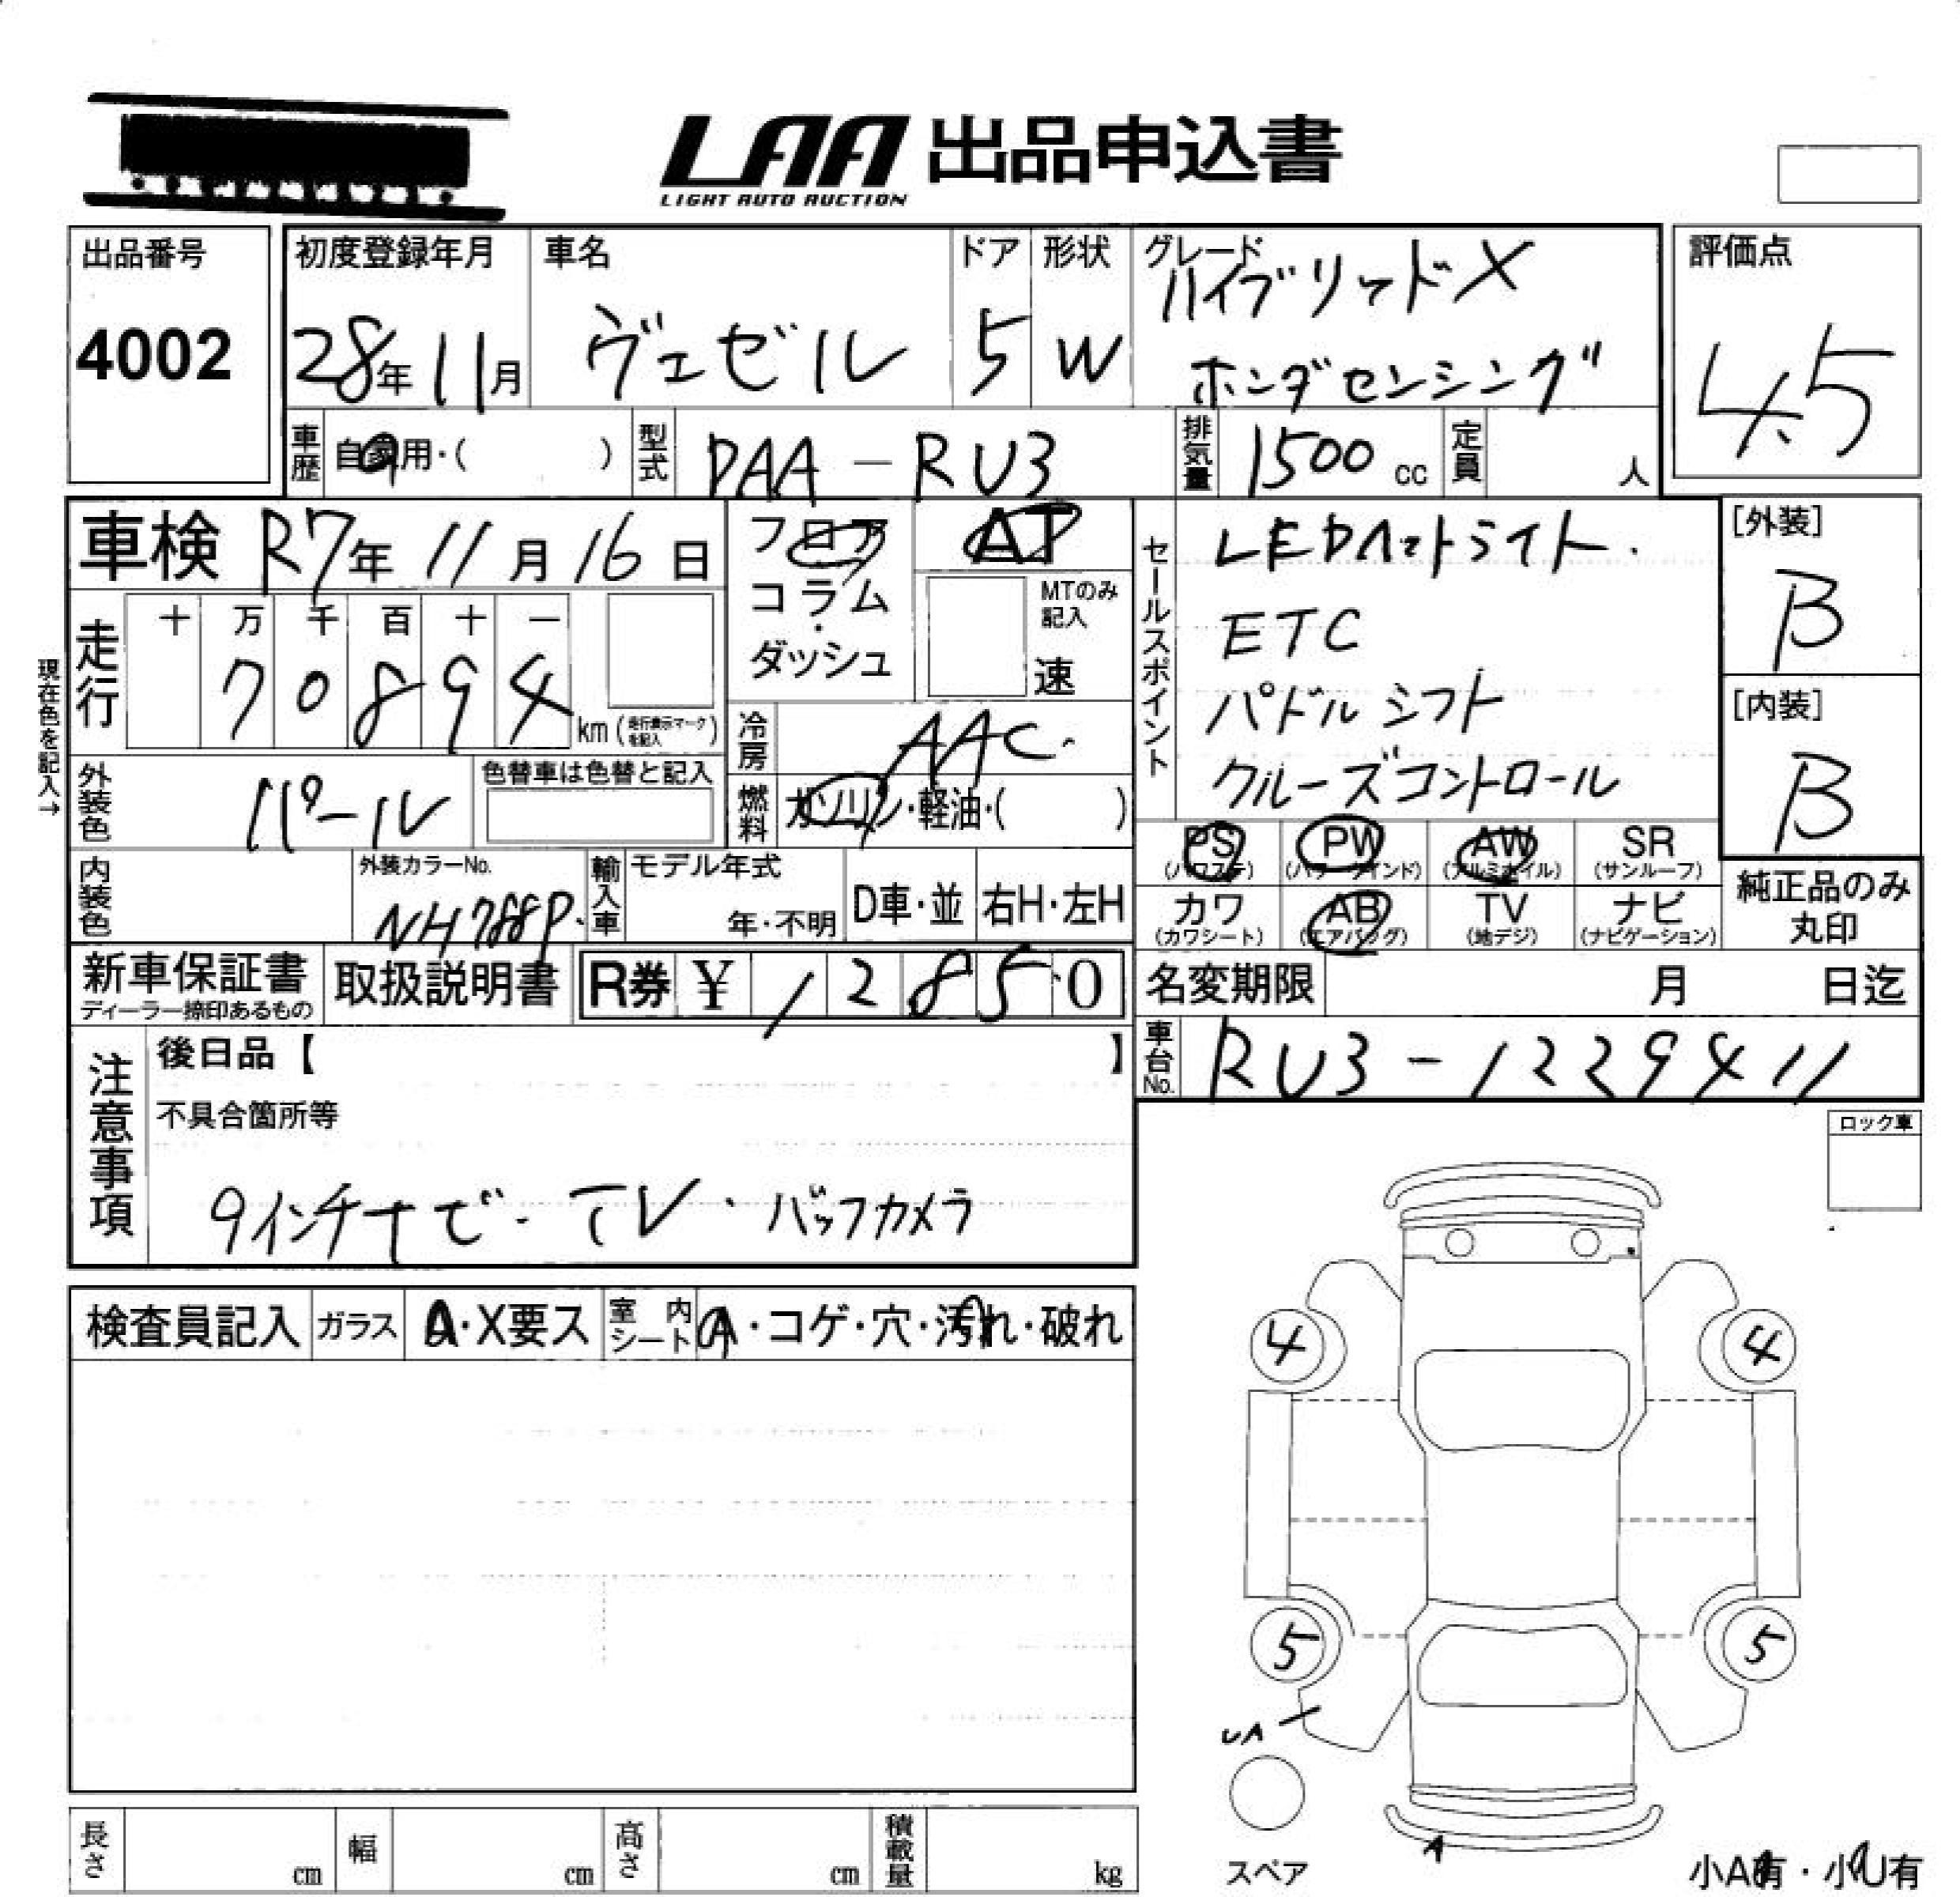 LAA 出品申込書
LIGHT AUTO AUCTION
出品番号
4002
初度登録年月
28年 11月
車名
ヴェゼル
ドア
5
形状
W
グレード
ハイブリッドX
ホンダセンシング
評価点
4.5
車歴
自家用・( )
型式
DAA-RU3
排気量
1500 cc
定員
人
車検 R7年 11月 16日
走行
十 万 千 百 十 一
7 0 8 9 4
km (走行表示マークを記入)
現在色を記入→
フロア
コラム
・
ダッシュ
AT
MTのみ
記入
速
冷房
AAC.
外装色
パール
色替車は色替と記入
燃料
ガソリン・軽油・( )
セールスポイント
LEDヘットライト.
ETC
パドルシフト
クルーズコントロール
[外装]
B
[内装]
B
PS
(パワステ)
PW
(パワーウインド)
AW
(アルミホイル)
SR
(サンルーフ)
カワ
(カワシート)
AB
(エアバッグ)
TV
(地デジ)
ナビ
(ナビゲーション)
純正品のみ
丸印
内装色
外装カラーNo.
NH788P.
輸入車
モデル年式
年・不明
D車・並
右H・左H
新車保証書
ディーラー捺印あるもの
取扱説明書
R券 ¥ 1 2 8 5 0
名変期限 月 日迄
車台No.
RU3-1229411
注意事項
後日品【 】
不具合箇所等
9インチナビ・TV・バックカメラ
ロック車
検査員記入
ガラス
A・X要ス
室内
シート
A・コゲ・穴・汚れ・破れ
4
4
5
5
UA
A
スペア
長さ cm
幅 cm
高さ cm
積載量 kg
小A有・小U有